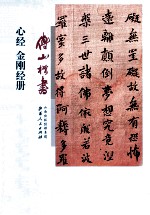 無罣礙故無有恐怖
遠離顛倒夢想究竟涅
槃三世諸佛依般若波
羅蜜多故得阿耨多羅
傅山楷書
心经 金刚经册